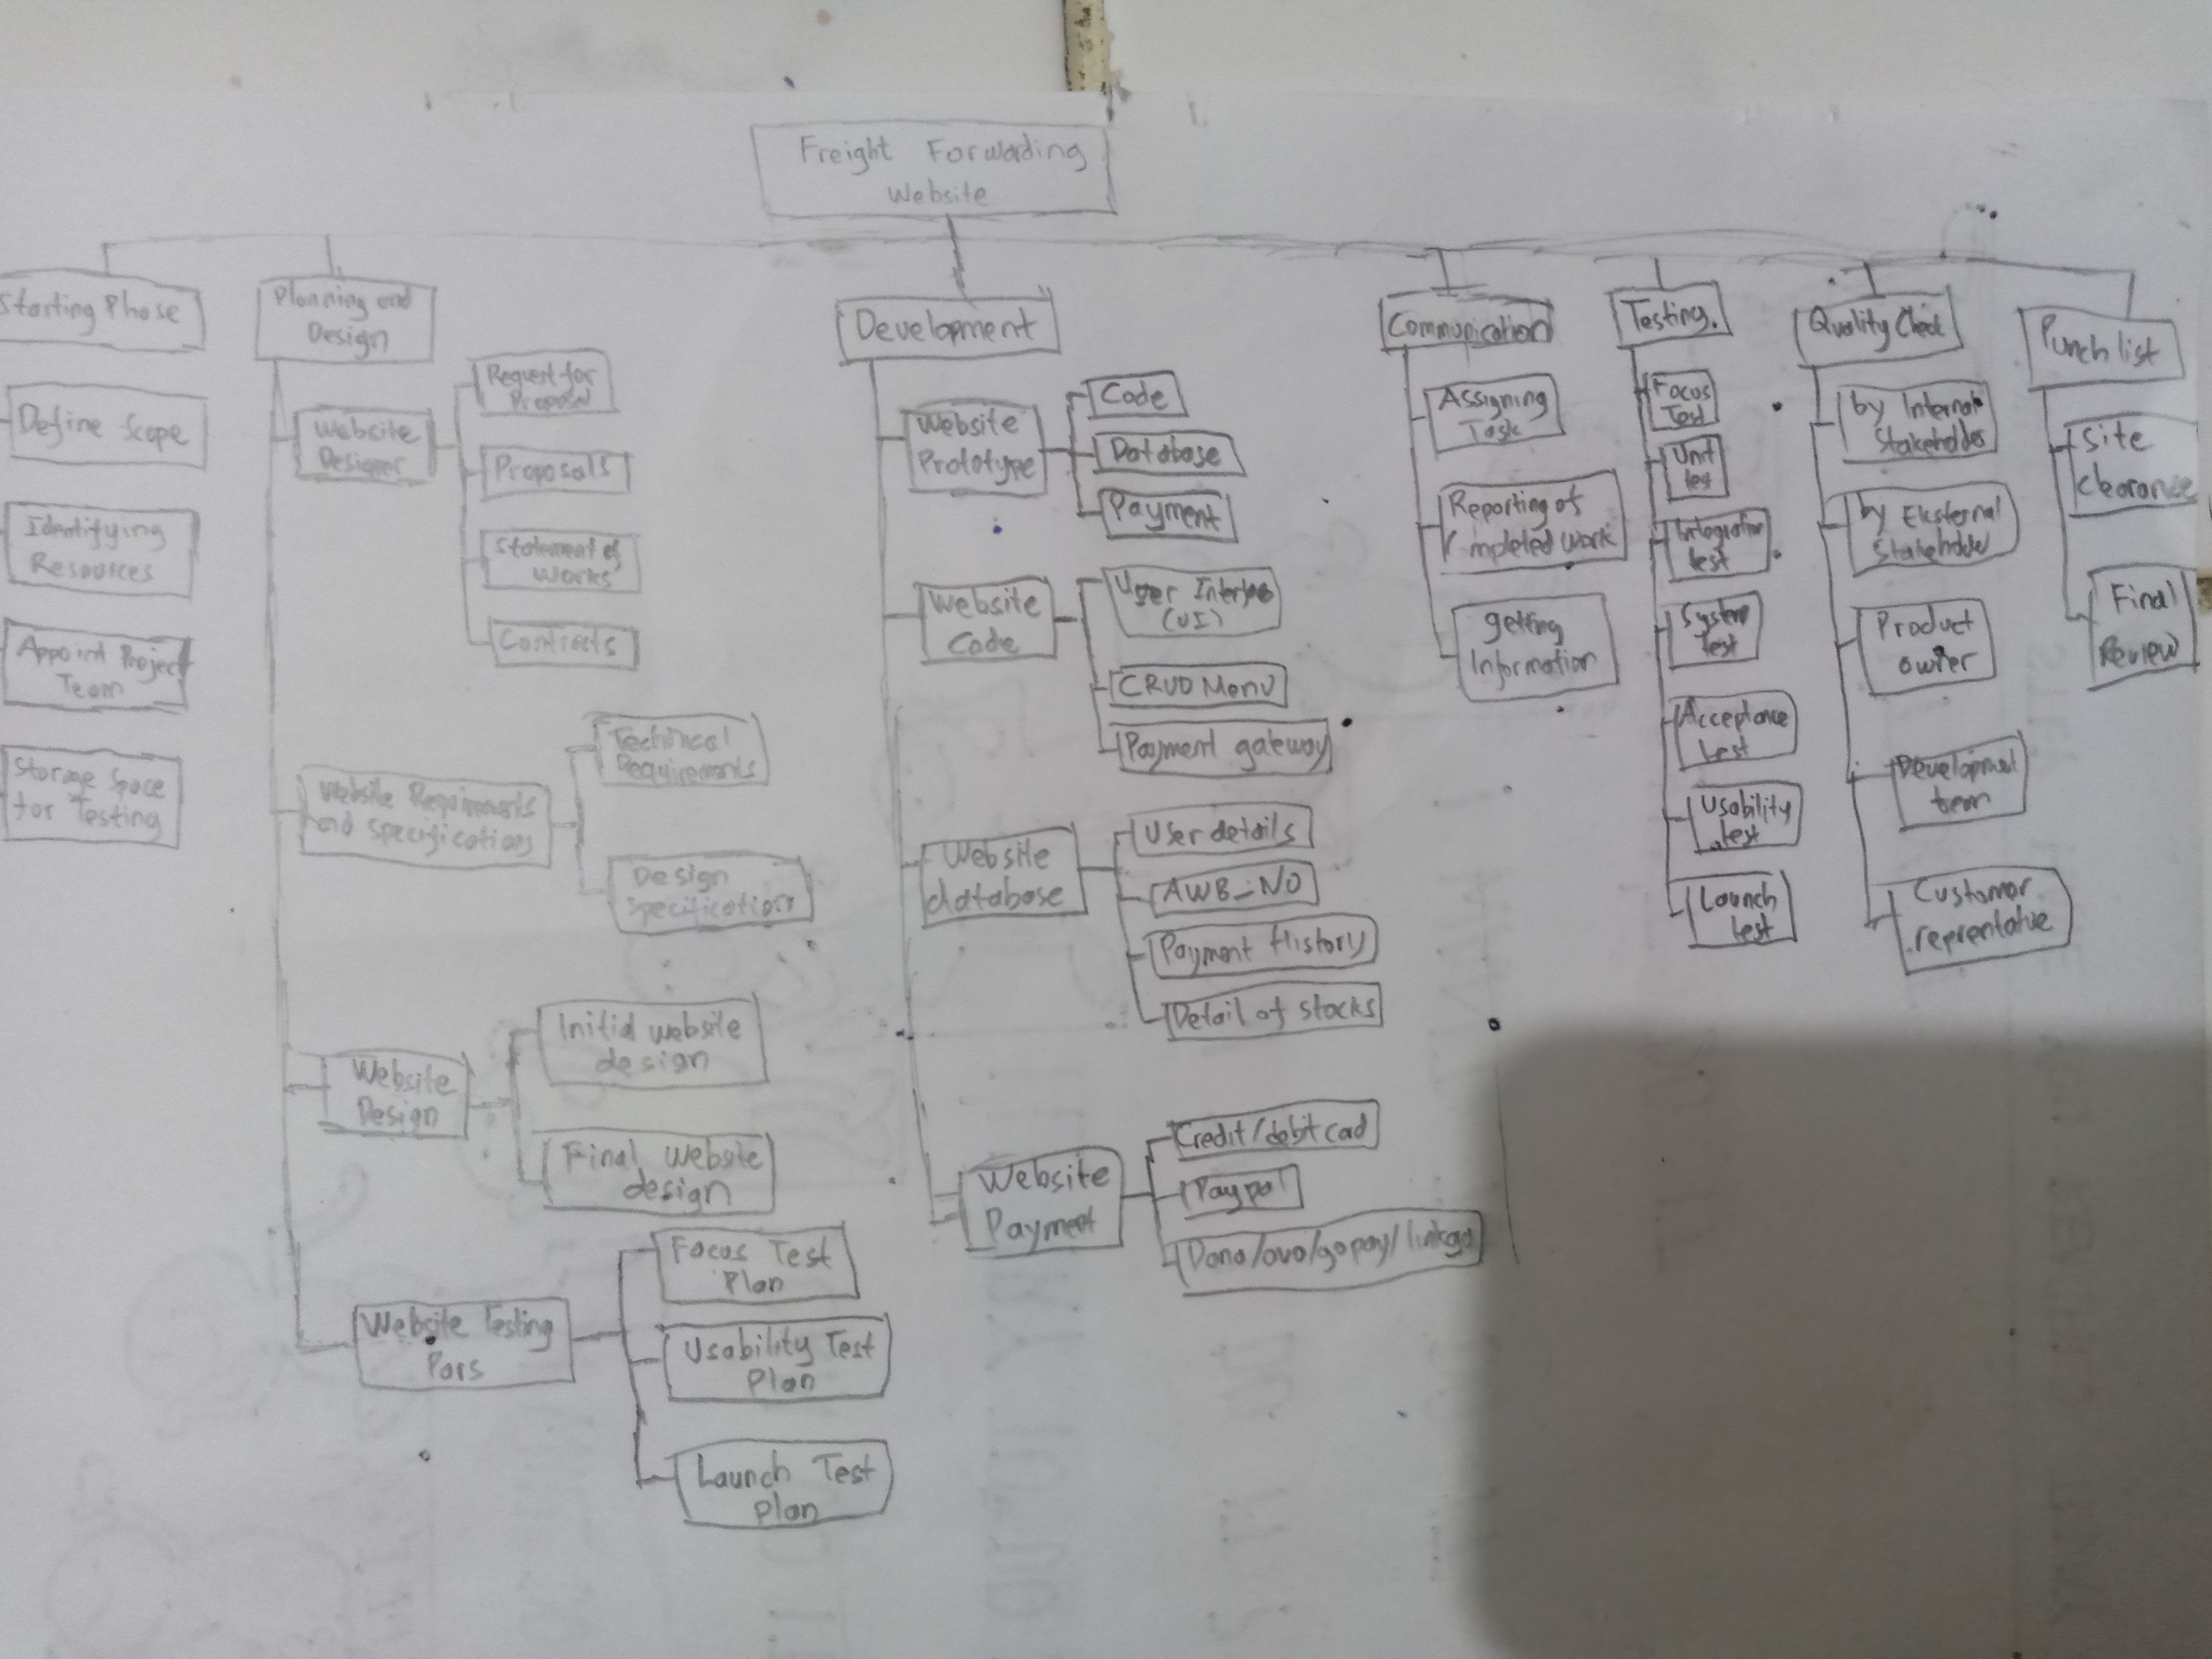 Freight Forwarding
Website
Starting Phase
Define Scope
Identifying
Resources
Appoint Project
Team
Storage Space
for Testing
Planning and
Design
Website
Designer
Request for
Proposal
Proposals
Statement of
Works
Contracts
Website Requirments
and specifications
Technical
Requirements
Design
specifications
Website
Design
Initial website
design
Final website
design
Website Testing
Pars
Focus Test
Plan
Usability Test
Plan
Launch Test
Plan
Development
Website
Prototype
Code
Database
Payment
Website
Code
User Interface
(UI)
CRUD Menu
Payment gateway
Website
database
User details
AWB_NO
Payment History
Detail of stocks
Website
Payment
Credit/debit card
Paypal
Dana/ovo/gopay/
Communication
Assigning
Task
Reporting of
Completed work
getting
Information
Testing.
Focus
Test
Unit
test
Integration
test
System
test
Acceptance
test
Usability
test
Launch
test
Quality Check
by Internal
Stakeholder
by Eksternal
Stakeholder
Product
owner
Development
team
Customer
reprentative
Punch list
Site
Clearance
Final
Review